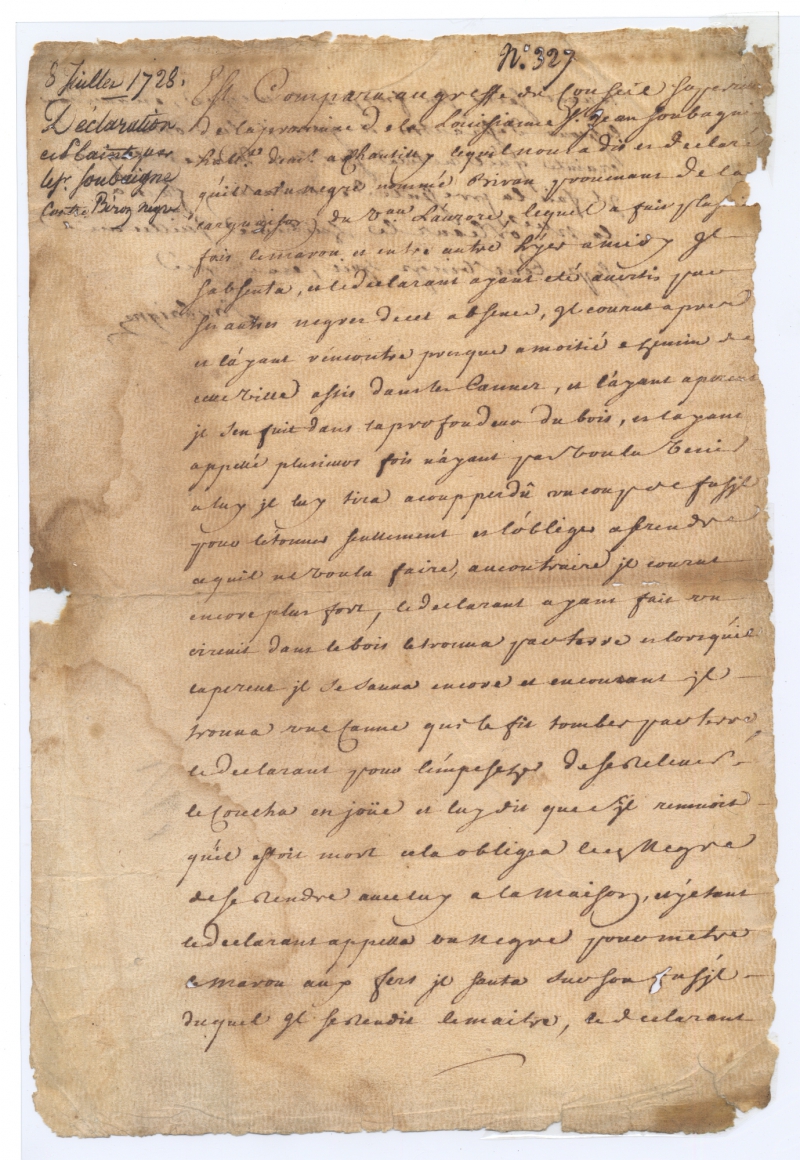 N.° 327
8 Juillet 1728.
Déclaration
et plainte par
le Sr. Soubaigné
Contre Biron negre
Est Comparu au greffe du Conseil Superieur
de la province de la Loüisianne Sr. Jean Soubagné
habt.° demt. a Chantilly lequel nous a dit et declaré
qu'il a un negre nommé Biron provenant de la
cargaison du Vau. L'aurore, lequel a fuis plusieurs
fois lemaron, et entre autre hyer a midy jl
s'absenta, et le declarant ayant eté avertis par
ses autres negres de cet absence, jl courut apres
et l'ayant rencontré presque a moitié chemin de
cette Ville assis dans les Cannes, et l'ayant aperceu
jl s'en fuit dans la profondeur du bois, et l'ayant
appellé plusieurs fois n'ayant pas voulu venir
a luy jl luy tira a coup perdû un coup de fusjl
pour l'étonner seullement et l'obliger a se rendre
ce qu'il ne voulu faire, au contraire jl courut
encore plus fort, le declarant ayant fait un
circuit dans le bois le trouva par terre et lorsqu'il
l'aperceut jl se sauva encore et en courant jl
trouva une Canne qui le fit tomber par terre,
le declarant pour l'empescher de se relever
le Coucha en joüe et luy dit que s'jl remuoit
qu'il estoit mort et la obligea led. Negre
de se rendre avec luy a la maison, et y étant
le declarant appella un Negre pour metre
le Maron aux fers jl sauta sur son fusjl
duquel jl se rendit le maitre, le declarant